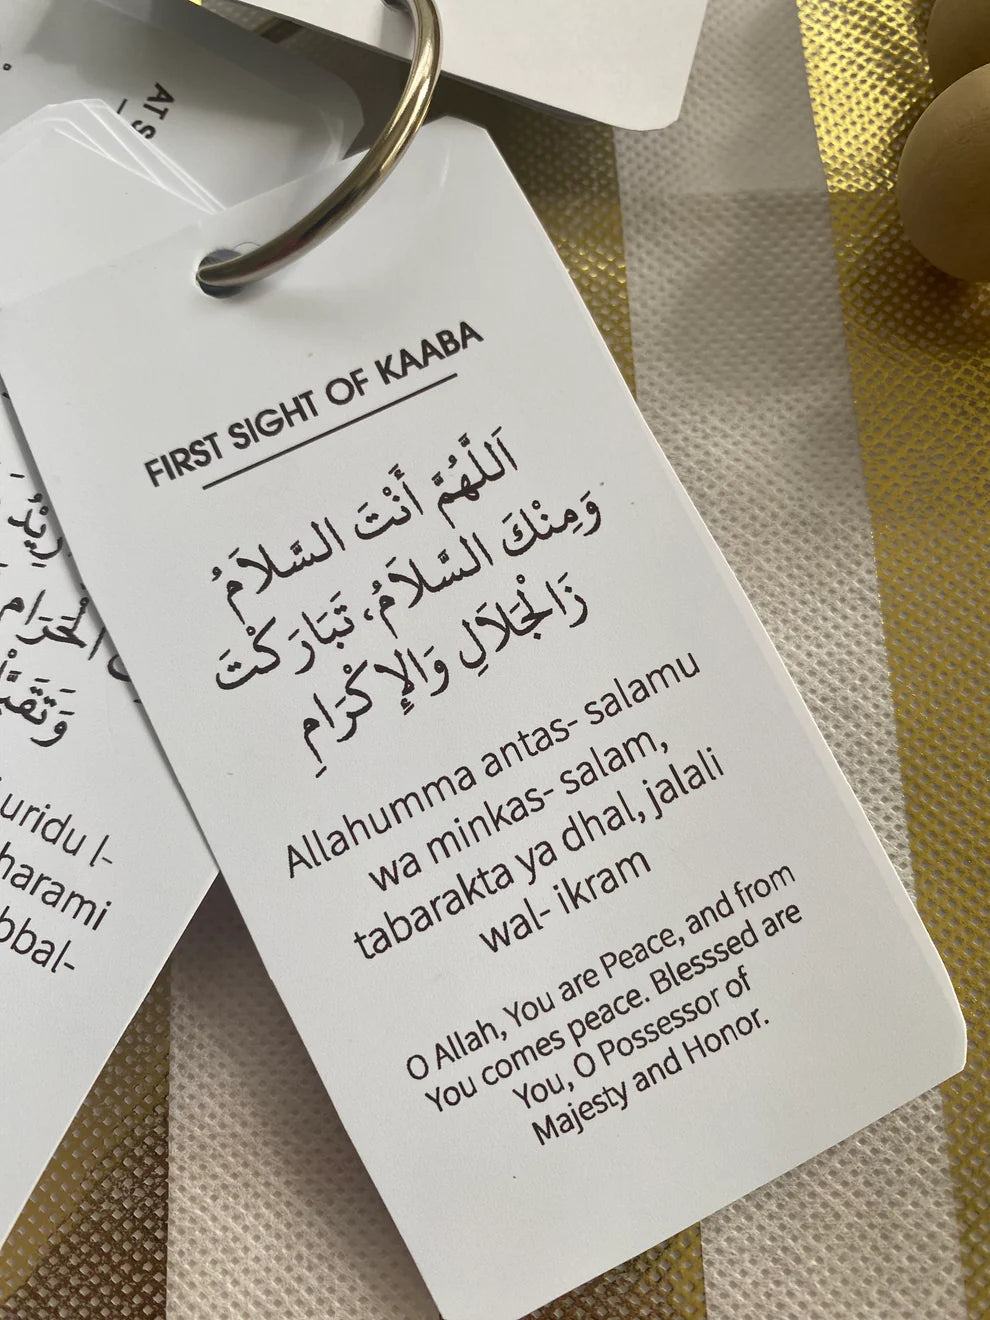 AT S
FIRST SIGHT OF KAABA
اَللَّهُمَّ أَنْتَ السَّلاَمُ
وَمِنْكَ السَّلاَمُ، تَبَارَكْتَ
ذَالْجَلَالِ وَالإِكْرَامِ
Allahumma antas- salamu
wa minkas- salam,
tabarakta ya dhal, jalali
wal- ikram
O Allah, You are Peace, and from
You comes peace. Blesssed are
You, O Possessor of
Majesty and Honor.
uridu l-
harami
bbal-